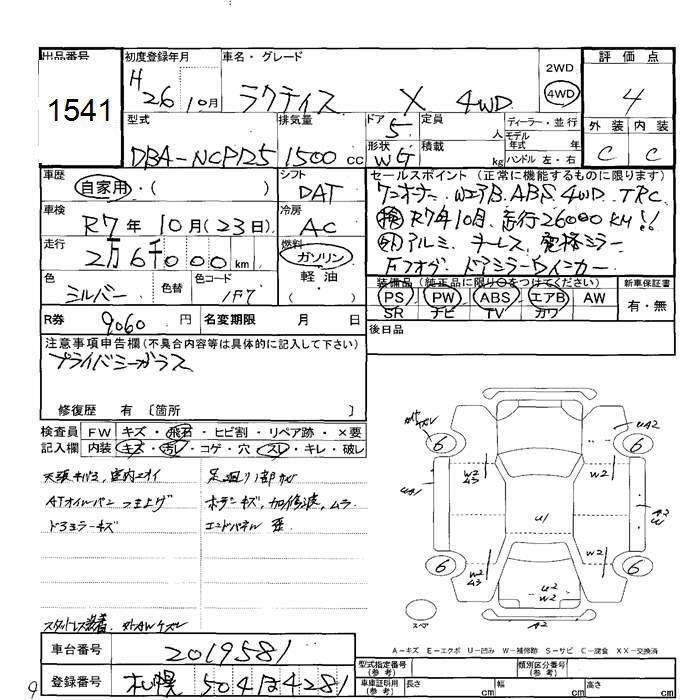 出品番号
1541
初度登録年月
H 26 年 10 月
車名・グレード
ラクティス X 4WD
2WD
4WD
評価点
4
外装 内装
C C
型式
DBA-NCP125
排気量
1500 cc
ドア
5
形状
WG
定員
人
積載
kg
ディーラー・並行
モデル
年式 年
ハンドル 左・右
車歴
自家用・( )
シフト
DAT
セールスポイント (正常に機能するものに限ります)
ワンオーナー WエアB. ABS. 4WD. TRC.
検 R7年10月 走行26000KM!!
外 アルミ キーレス 電格ミラー
Fフォグ ドアミラーウインカー
車検
R7 年 10 月 (23 日)
冷房
AC
走行
2万6千000 km
燃料
ガソリン
軽油
( )
色
シルバー
色替
色コード
1F7
装備品 (純正品に限り○をつけてください)
PS PW ABS エアB AW
SR ナビ TV カワ
新車保証書
有・無
R券
9060 円
名変期限 月 日
後日品
注意事項申告欄(不具合内容等は具体的に記入して下さい)
プライバシーガラス
修復歴 有 〔箇所 〕
検査員 FW キズ・飛石・ヒビ割・リペア跡・×要
記入欄 内装 キズ・汚レ・コゲ・穴・スレ・キレ・破レ
天張キバミ, 室内ニオイ
ATオイルパン つき上げ
ドアミラーキズ
足廻り1部サビ
ボデーキズ, 加修波, ムラ
エンドパネル 歪
スタットレス装着 外AWケズレ
ガイヤケズレ
6
6
6
6
UA2
UA1
W2
A3
W2
A2
W
U1
W2
A3
W2
U2
W2
A2
スペア
A−キズ E−エクボ U−凹み W−補修跡 S−サビ C−腐食 XX−交換済
車台番号
2019581
登録番号
札幌 504 ほ 4281
型式指定番号
(参考)
類別区分番号
(参考)
車庫証明用
(参考)
長さ cm
幅 cm
高さ cm